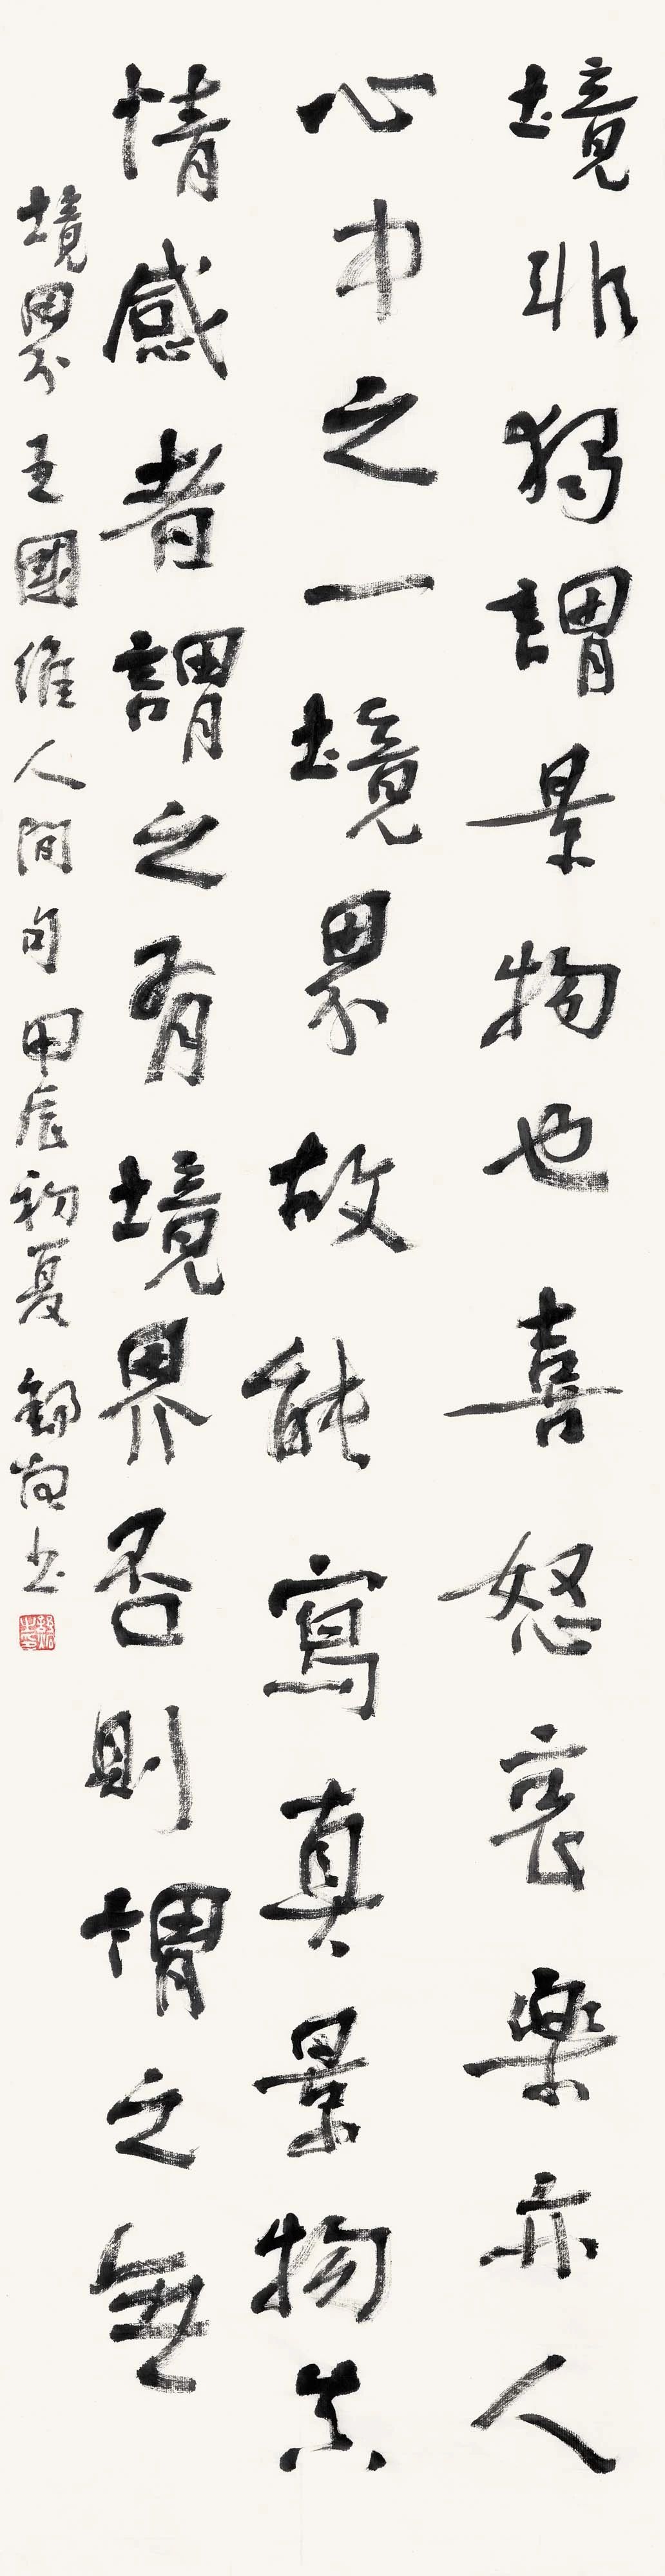 境非獨謂景物也喜怒哀樂亦人
心中之一境界故能寫真景物真
情感者謂之有境界否則謂之無
境界 王國維人間句 甲辰初夏 書